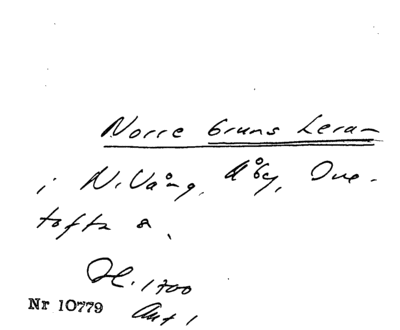 Norre Gruns Lera-
i N. Vång, Åby, One-
tofta s.
Sk. 1700
Nr 10779 Akt 1